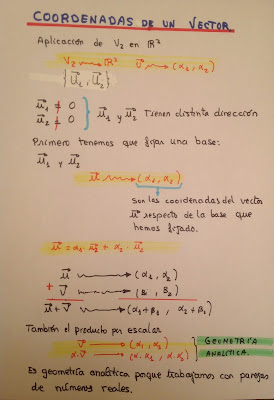 COORDENADAS DE UN VECTOR
Aplicación de V₂ en ℝ²
V₂ ⟶ ℝ² v⃗ ⟶ (α₁, α₂)
{u⃗₁, u⃗₂}
u⃗₁ ≠ 0
u⃗₂ ≠ 0 } u⃗₁ y u⃗₂ Tienen distinta dirección
Primero tenemos que fijar una base:
u⃗₁ y u⃗₂
u⃗ ⟶ (α₁, α₂)
Son las coordenadas del vector
u⃗ respecto de la base que
hemos fijado.
u⃗ = α₁·u⃗₁ + α₂·u⃗₂
u⃗ ⟶ (α₁, α₂)
+ v⃗ ⟶ (β₁, β₂)
u⃗+v⃗ ⟶ (α₁+β₁, α₂+β₂)
También el producto por escalar
v⃗ ⟶ (α₁, α₂) GEOMETRÍA
α·v⃗ ⟶ (α·α₁, α·α₂) ANALÍTICA.
Es geometría analítica porque trabajamos con parejas
de números reales.